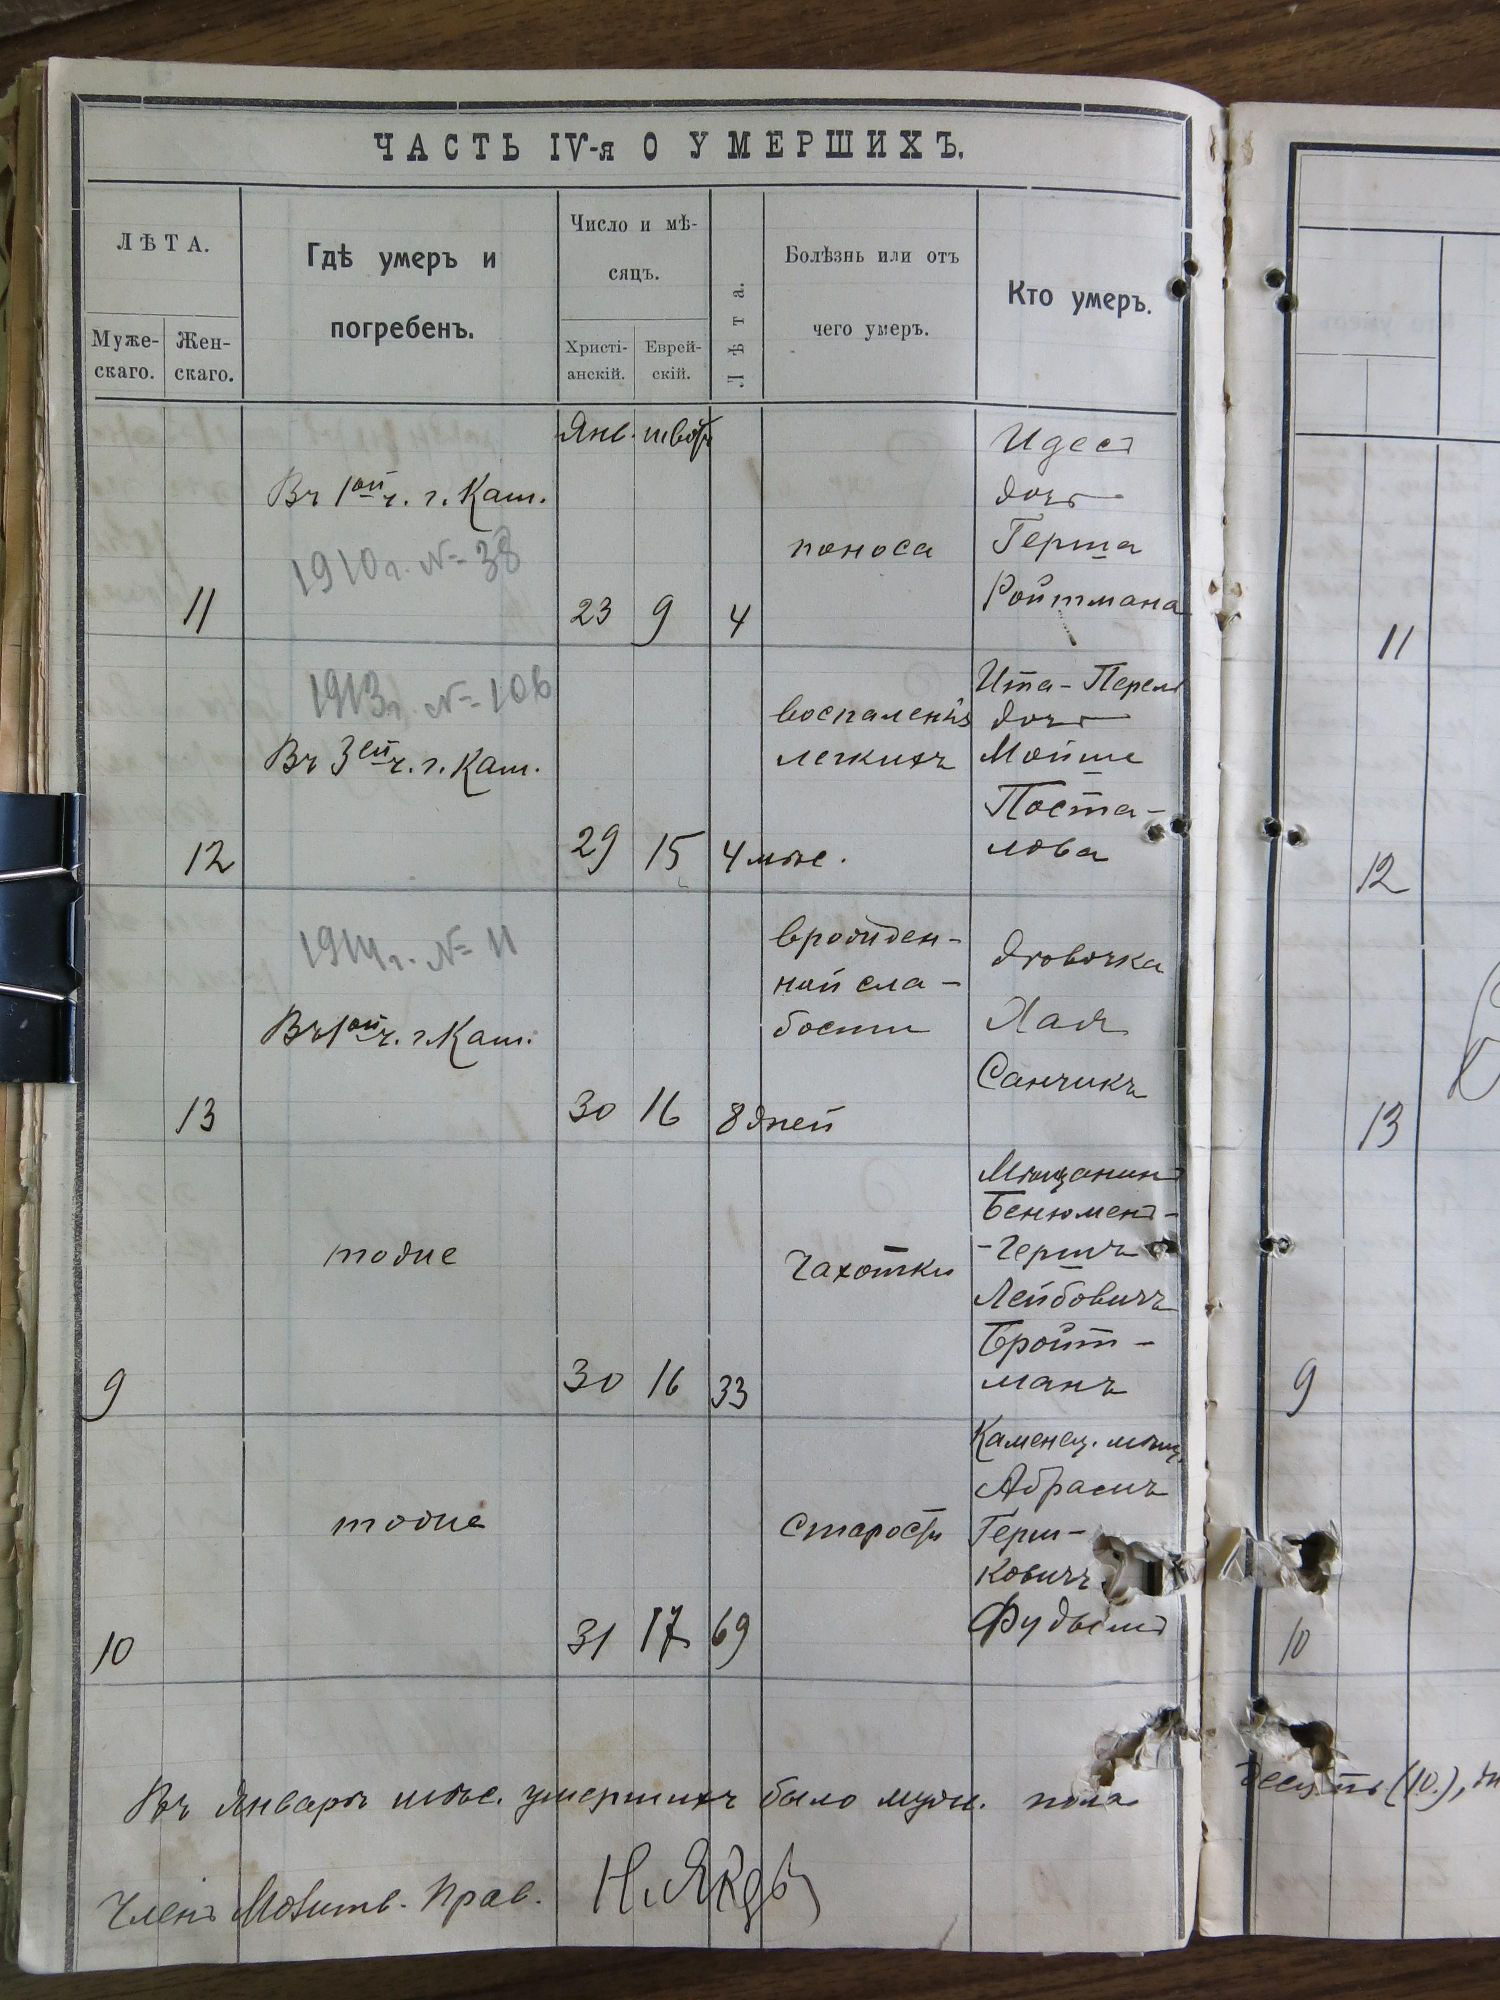 ЧАСТЬ IV-я О УМЕРШИХЪ.
ЛѢТА.
Муже-
скаго.
Жен-
скаго.
Гдѣ умеръ и
погребенъ.
Число и мѣ-
сяцъ.
Христі-
анскій.
Еврей-
скій.
Лѣта.
Болѣзнь или отъ
чего умеръ.
Кто умеръ.
Янв. шватъ
11
Въ 1ой ч. г. Кам.
1910 г. № 38
23 9 4
поноса
Идесъ
дочь
Герша
Ройтмана
11
12
1913 г. № 106
Въ 3ей ч. г. Кам.
29 15 4 мѣс.
воспаленія
легкихъ
Ита-Перель
дочь
Мойше
Поста-
лова
12
13
1914 г. № 11
Въ 1ой ч. г. Кам.
30 16 8 дней
врожден-
ной сла-
бости
дѣвочка
Хая
Санчикъ
13
9
тоже
30 16 33
чахотки
Мѣщанинъ
Бенюменъ-
-Гершъ
Лейбовичъ
Бройт-
манъ
9
10
тоже
31 17 69
старости
Каменец. мѣщ.
Абрамъ
Герш-
ковичъ
Фудымъ
10
Въ Январѣ мѣс. умершихъ было муж. пола десять (10.),
Членъ Молитв. Прав.